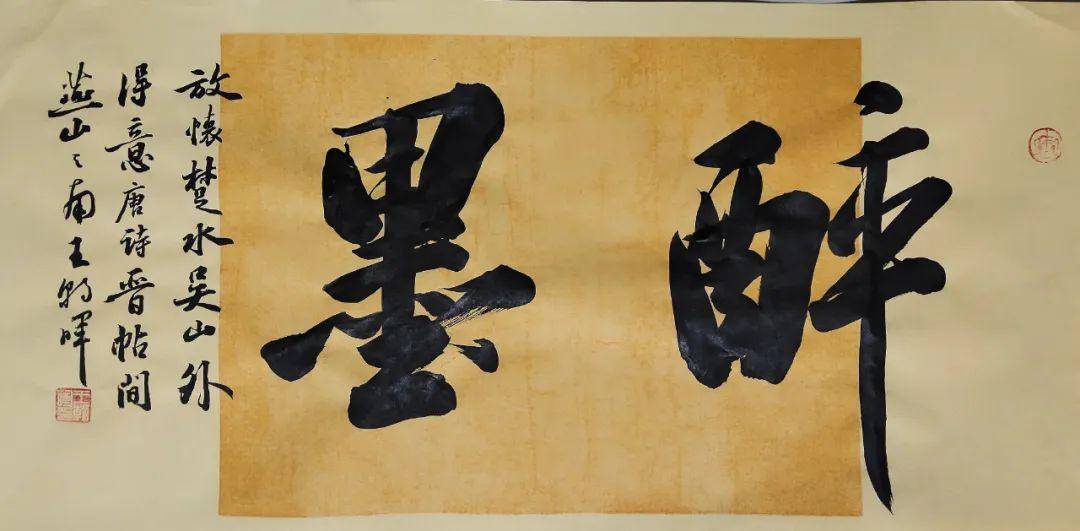 醉墨
放懷楚水吴山外
得意唐诗晋帖间
燕山之南王朝暉